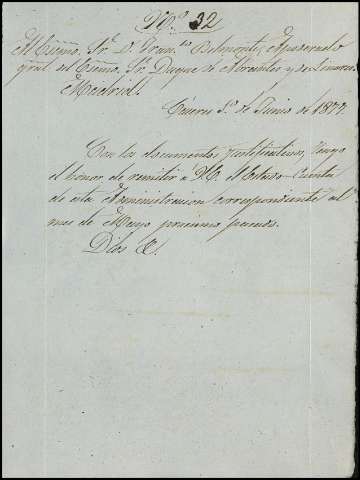 Nº. 32
Al Exmo. Sr. D. Fran.co Belmonte, Apoderado
gral. del Exmo. Sr. Duque de Abrantes y de Linares.
Madrid.
Cáceres 3º de Junio de 1877.
Con los documentos justificativos, tengo
el honor de remitir a V.E. el Estado-Cuenta
de esta Administracion correspondiente al
mes de Mayo proximo pasado.
Dios &.